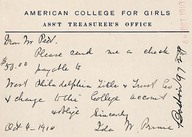 AMERICAN COLLEGE FOR GIRLS
ASS'T TREASURER'S OFFICE
Dear Mr Peet.
Please send me a check
$50.00 payable to
West Philadelphia Title & Trust Co
& change to this College account
& oblige Sincerely
Oct 4 1910 Ida W. Prime